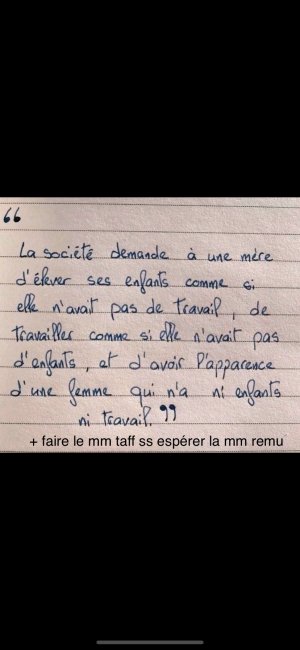 “
La société demande à une mère
d'élever ses enfants comme si
elle n'avait pas de travail, de
travailler comme si elle n'avait pas
d'enfants, et d'avoir l'apparence
d'une femme qui n'a ni enfants
ni travail. ”
+ faire le mm taff ss espérer la mm remu